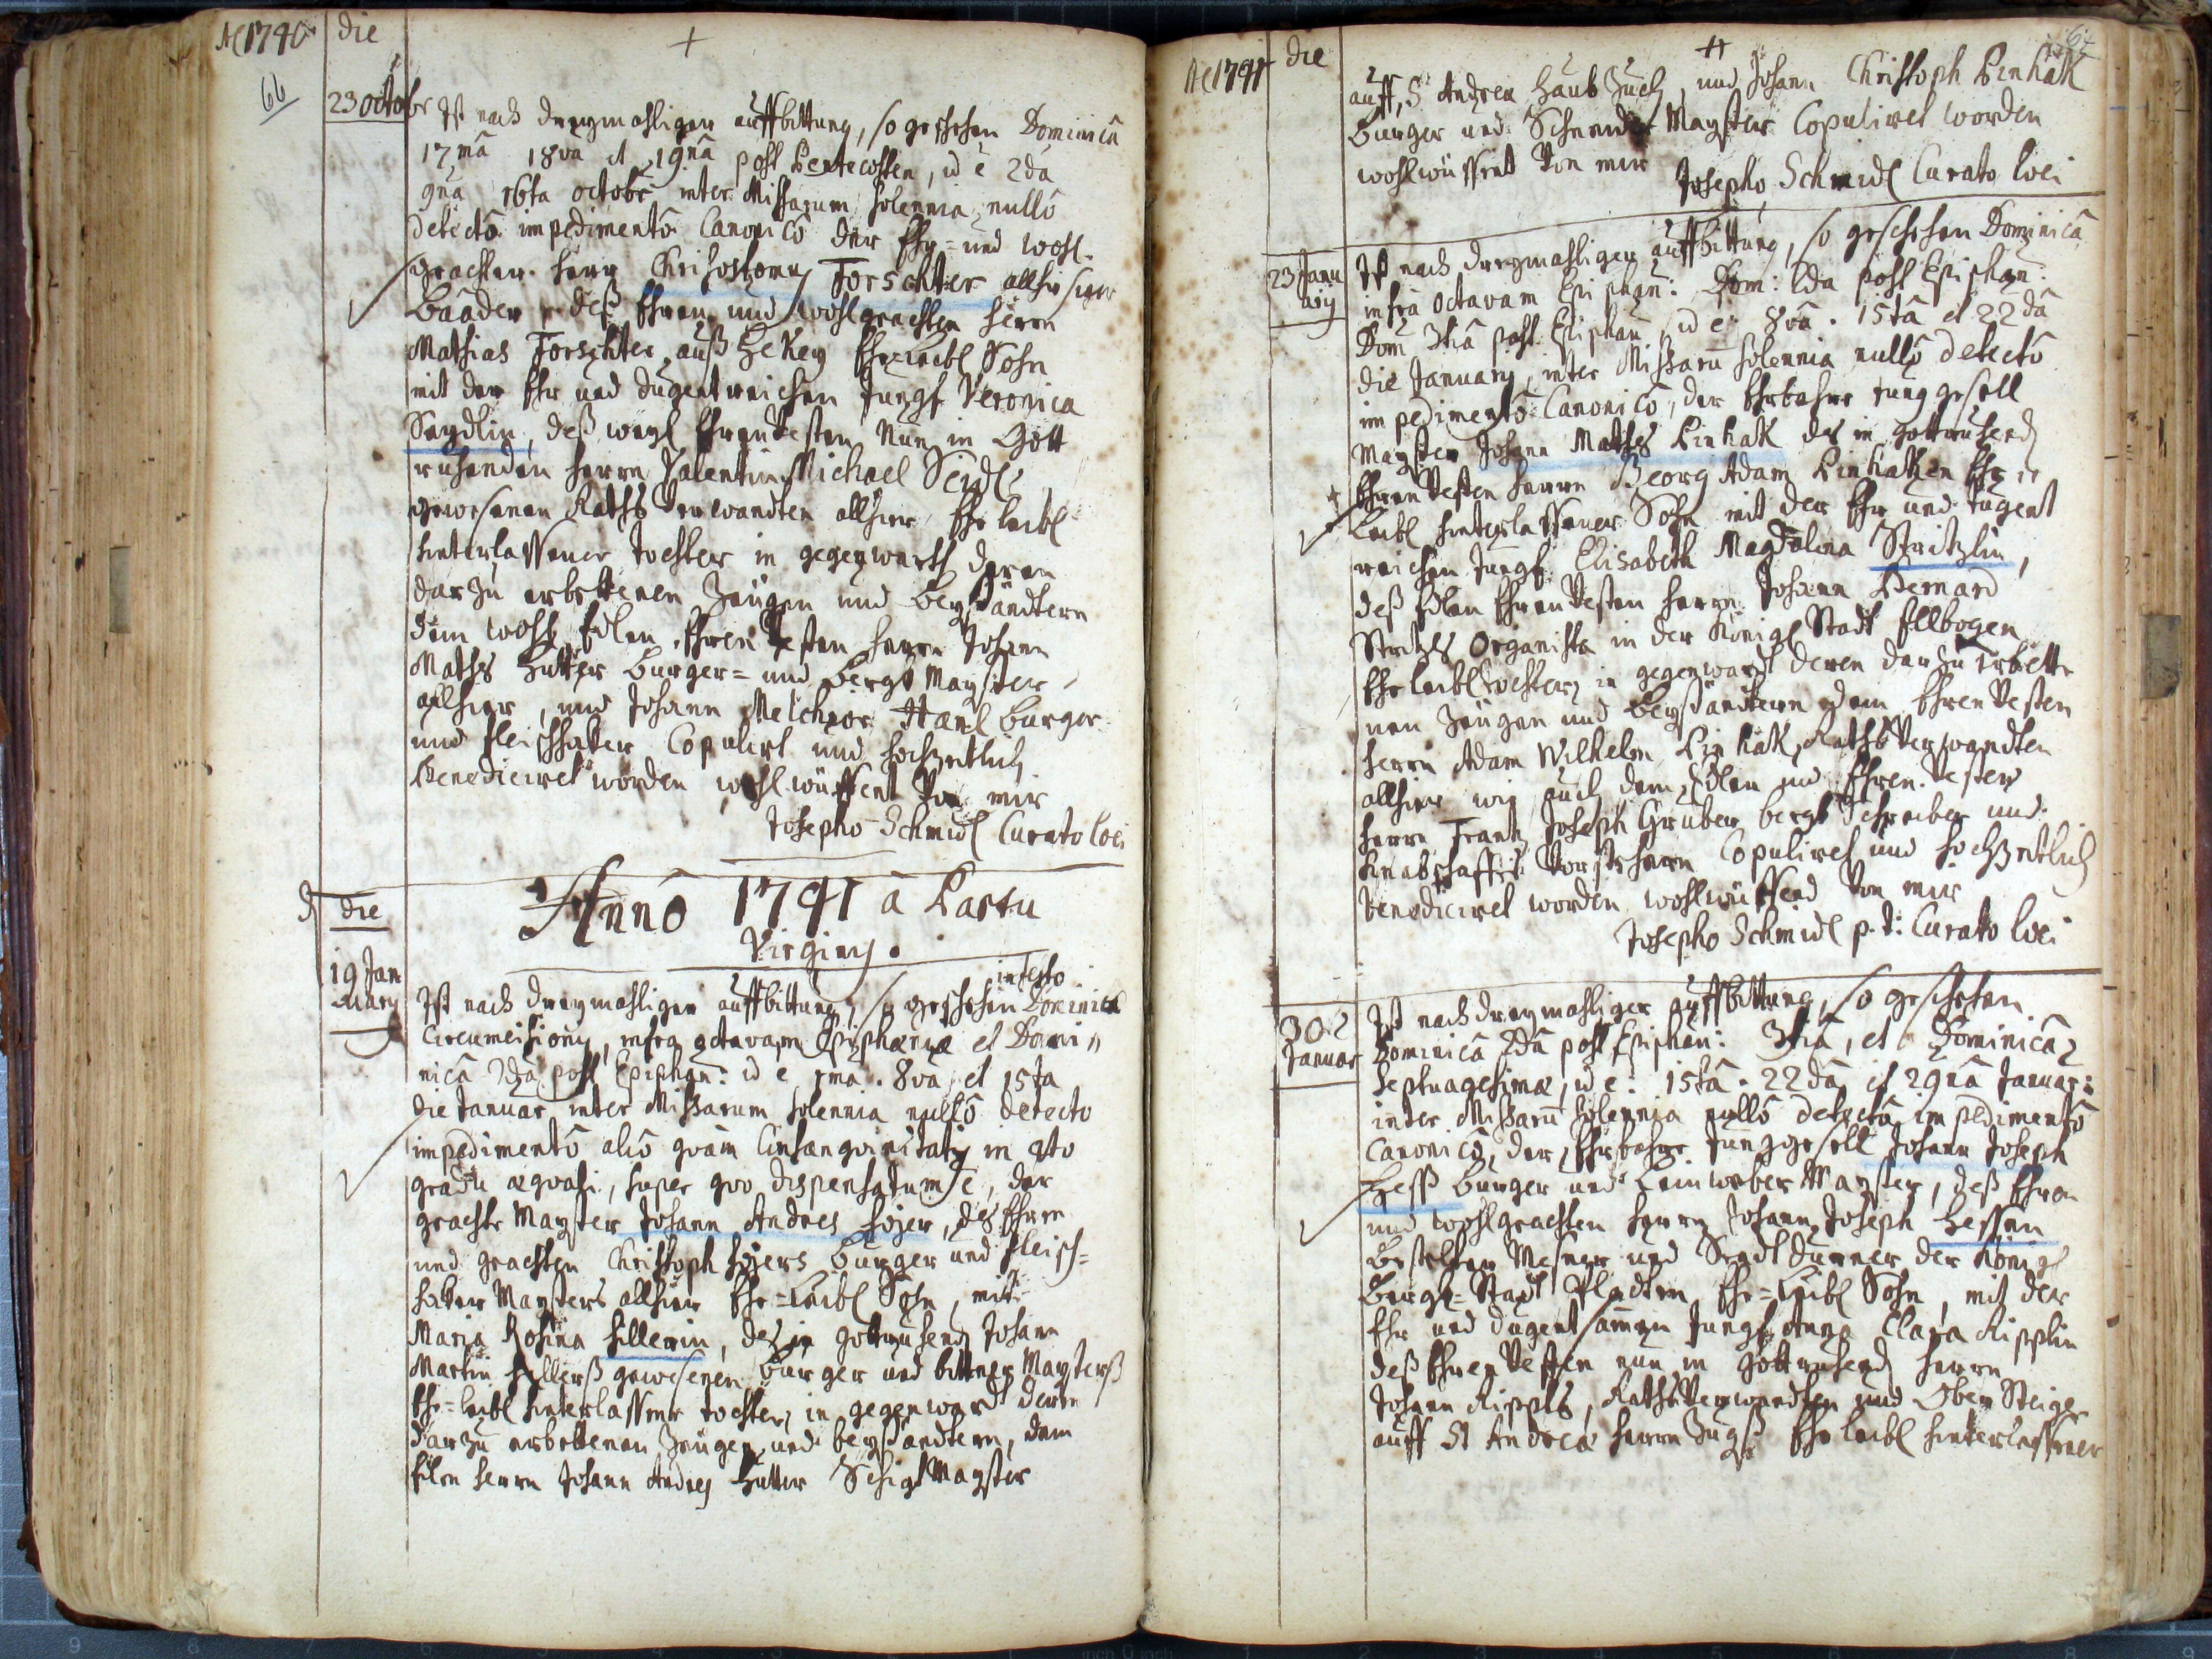 Ao 1740
die
66
23 octobr
Ist nach dreymahliger auffbittung, so geschehen Dominicâ
17mâ 18va et 19nâ post Pentecosten, id ē 2da
9na 16ta octobr inter Missarum solennia nullô
detectô impedimentô Canonicô der Ehr= und wohl
geachter herr Chrisostomy Forschter allhisiger
Baader deß Ehren und wohlgeachten herrn
Mathias Forschter auß Ehe=Leibl Sohn
mit der Ehr und dugentreichen Jungf Veronica
Seydlin, deß weyl Ehrenvesten Nun in Gott
ruhenden herrn Valentin Michael Seidl
gewesenen Raths Verwandten allhier Ehe leibl
hinterlassener tochter in gegenwarth deren
darzu erbettenen Zeugen und beyständtern
dem wohl Edlen Ehren Vesten herrn Johann
Maths Hutter burger= und bergk Mayster
allhier, und Johann Melchior Hanl burger
und fleischhaker Copulirt und hochzeitlich
Benediciret worden wohlwüssent Von mir
Josepho Schmidl Curato loci
die
Annô 1741 â Partu
Virginis.
19 Jan
uary
in festo
Ist nach dreymahliger auffbittung, so geschehen Dominica
Circumcisionis, infra octavam Epiphaniæ et Domi
nicâ 2da post Epiphan: id e 1ma. 8va et 15ta
die Januar inter Missarum solennia nullô detecto
impedimentô aliô quàm Consanguinitatis in 4to
gradu æquali, super quo dispensatum ē, der
geachte Mayster Johann Andres hojer, des Ehren
und geachten Christoph hojers burger und fleisch=
haker Maysters allhier Ehe=Leibl Sohn, mit
Maria Rosina hillerin, des in gottruhend Johann
Martin hillerß gewesenen burger und bittner Maysterß
Ehe=leibl hinterlassene tochter, in gegenward deren
darzu erbettenen Zeugen und beyständtern, dem
Edlen herrn Johann Andres Hutter Schigt Mayster
Ao 1741
die
auff S Andrea Haubt Zuch, und Johann Christoph Pinhak
burger und Schneider Mayster Copuliret worden
wohlwüssent Von mir
Josepho Schmidl Curato loci
23 Janu
arij
Ist nach dreymahliger auffbittung, so geschehen Dominicâ
infra octavam Epiphan: Dom: 2da post Epiphan:
Dom 3tiâ post Epiphan id e: 8va. 15tâ et 22dâ
die January, inter Missarū solennia nullô detectô
impedimentô Canonicô, der Ehrbahre Junggesell
Mayster Johann Maths Pinhak des in gottruhend
Ehren Vesten herrn Georg Adam Pinhaken Ehe
Leibl hinterlassener Sohn mit der Ehr und tugent
reichen Jungf: Elisabeth Magdalena Stritzlin,
deß Edlen Ehren Vesten herrn Johann Bernard
Stritzls Organista in der Königl Stadt Ellbogen
Ehe leibl Tochter, in gegenwardt deren darzu erbette
nen Zeugen und beyständtern dem Ehren Vesten
herrn Adam Wilhelm Pinhak, Raths Verwandten
allhier wie auch dem Edlen und Ehren Vesten
herrn Frantz Joseph Gruber bergk Schreiber und
Vorstehern Copuliret und hochzeitlich
benediciret worden wohlwüssend Von mir
Josepho Schmidl p.t: Curato loci
30
Januar
Ist nach dreymahliger auffbittung, so geschehen
Dominicâ 2da post Epiphan: 3tiâ, et Dominicâ
Septuagesimæ, id e: 15tâ. 22dâ et 29nâ Januar:
inter Missarū solennia nullô detectô impedimentô
Canonicô, der Ehrbahre Junggesell Johann Joseph
Hess burger und Leinweber Mayster, deß Ehren
und wohlgeachten herrn Johann Joseph Hessen
bestelten Mesner und Stadt Durner der Königl
Bergk=Stadt Pladten Ehe=Leibl Sohn, mit der
Ehr und dugentsamen Jungf Anna Clara Ripplin
deß Ehren Vesten nun in gottruhend herrn
Johann Ripples, Raths Verwandten und Ober Steiger
auff St Andrea herrn Zugß Ehe leibl hinterlassener